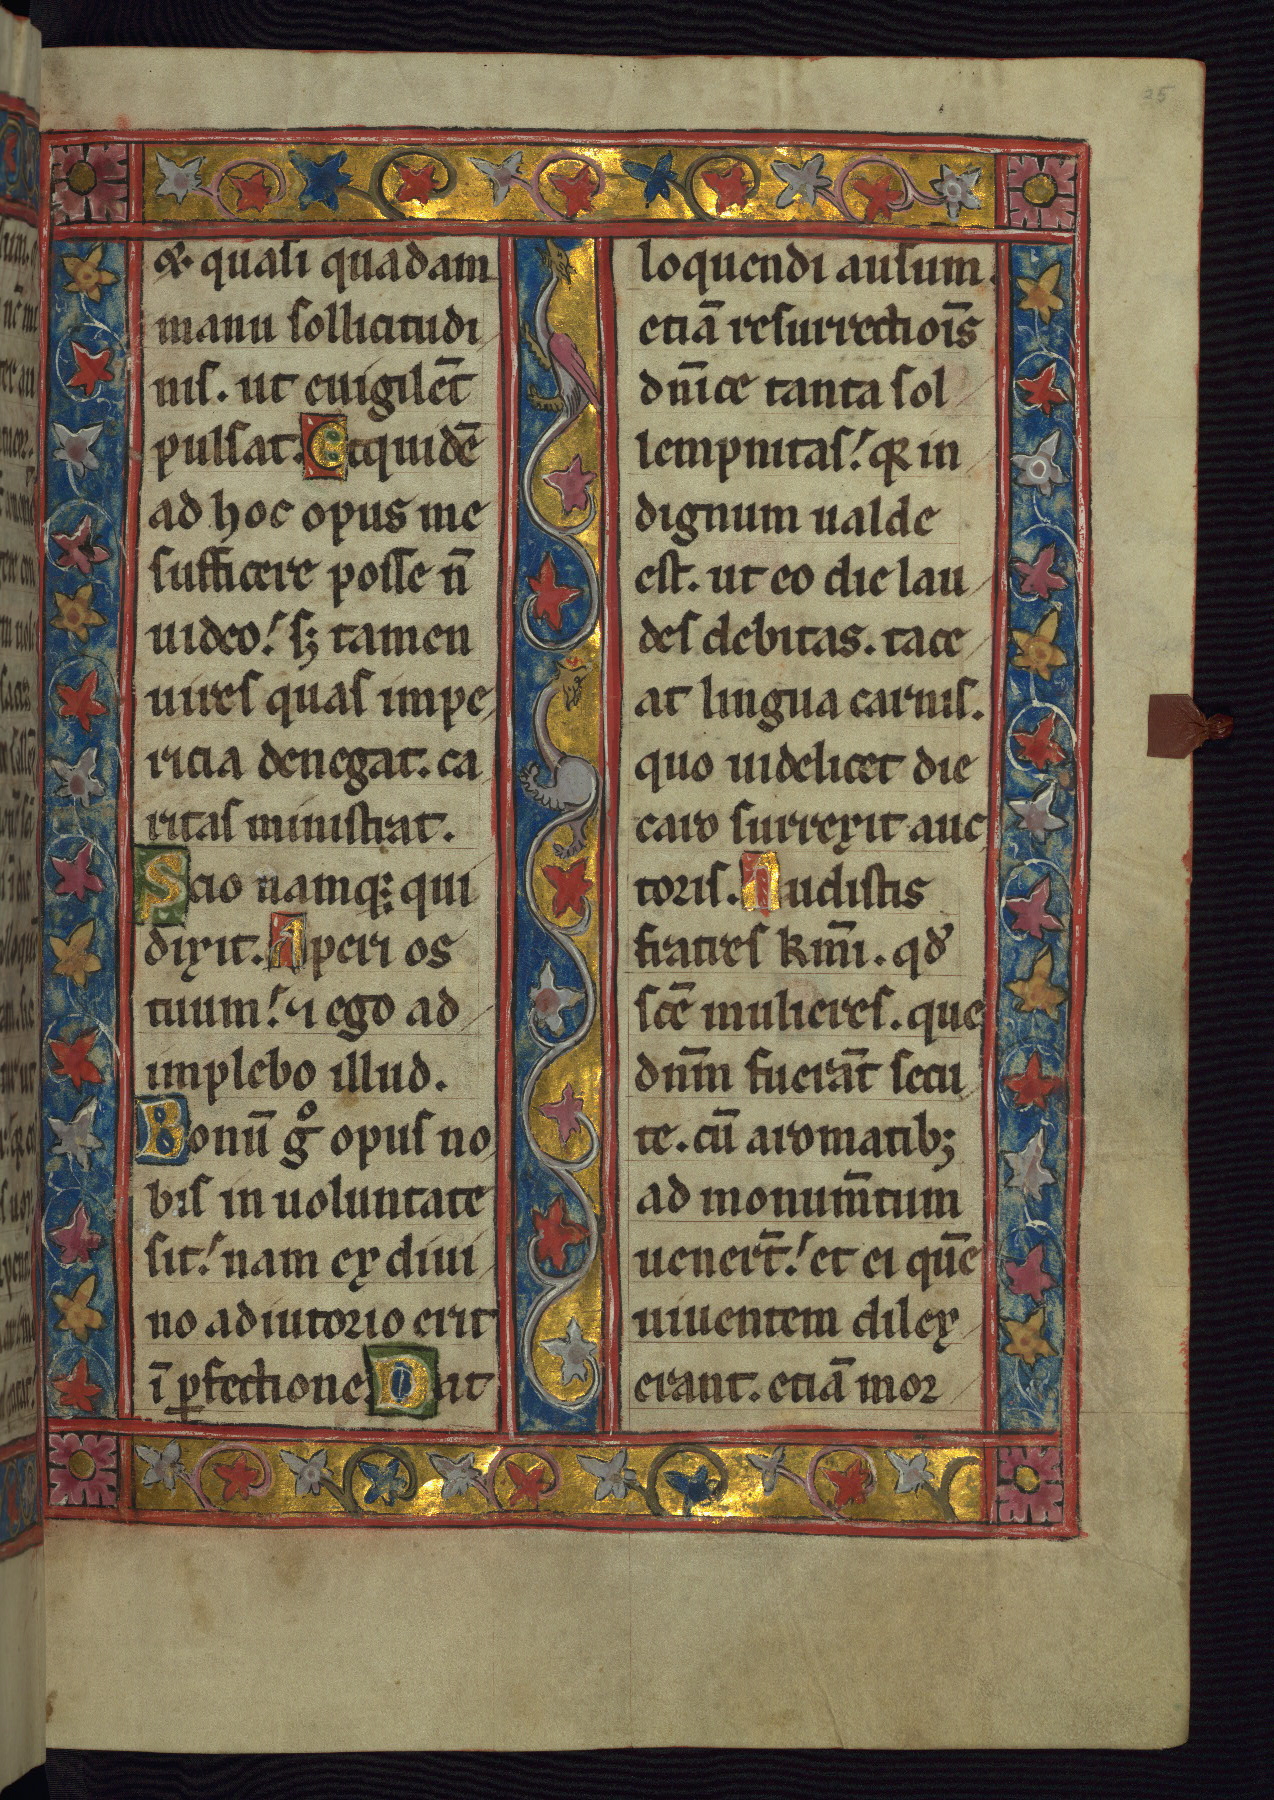 25
& quasi quadam
manu sollicitudi
nis. ut euigilēt
pulsat. Et quidē
ad hoc opus me
sufficere posse n̄
uideo. sꝫ tamen
uires quas impe
ricia denegat. ca
ritas ministrat.
Scio namq; qui
dixit. Aperi os
tuum. ⁊ ego ad
implebo illud.
Bonū gͦ opus no
bis in uoluntate
sit. nam ex diui
no adiutorio erit
ī ꝑfectione. Dat
loquendi ausum.
etiā resurrectiōis
dn̄ice tanta sol
lempnitas. quia in
dignum ualde
est. ut eo die lau
des debitas. tace
at lingua carnis.
quo uidelicet die
caro surrexit auc
toris. Audistis
fratres km̄i. qd̓
scē mulieres. que
dn̄m fuerāt secu
te. cū aromatibꝫ
ad monum̄tum
uenert̄. et ei quē
uiuentem dilex
erant. etiā mor